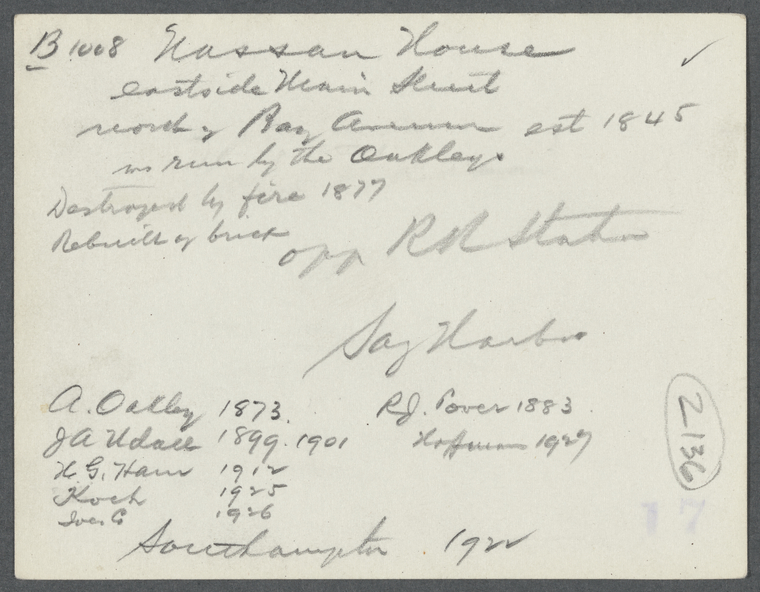 B 1008 Nassau House ✓
eastside Main Street
north of Bay Avenue est 1845
was run by the Oakleys
Destroyed by fire 1877
Rebuilt of brick
opp RR Station
Sag Harbor
A. Oakley 1873.
J A Udall 1899. 1901
H. G. Ham 1912
Koch 1925
1926
R.J. Power 1883
Hoffman 1927
2136
17
Southampton 1922